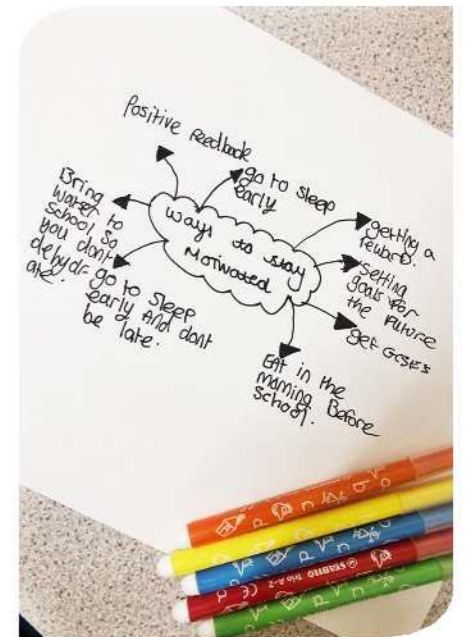 Positive Feedback
go to sleep
early
getting a
reward.
Setting
goals for
the future
get GCSEs
Eat in the
morning Before
school.
go to sleep
early And dont
be late.
Bring
water to
school so
you dont
dehydr-
ate.
ways to stay
Motivated
STABILO Trio A-Z